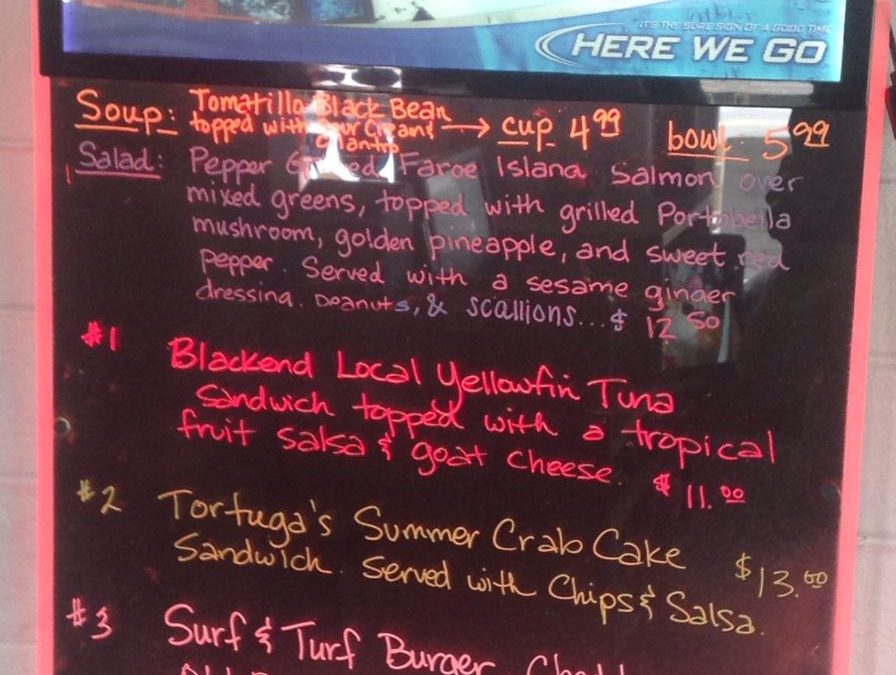 IT'S THE SURE SIGN OF A GOOD TIME
HERE WE GO
Soup: Tomatillo Black Bean
topped with Sour Cream &
Cilantro → cup 4.99 bowl. 5.99
Salad: Pepper Grilled Faroe Island Salmon over
mixed greens, topped with grilled Portobella
mushroom, golden pineapple, and sweet red
pepper. Served with a sesame ginger
dressing. peanuts, & scallions... $ 12.50
#1 Blackend Local Yellowfin Tuna
Sandwich topped with a tropical
fruit salsa & goat cheese. $ 11.00
#2 Tortuga's Summer Crab Cake
Sandwich. Served with Chips & Salsa. $13.00
#3 Surf & Turf Burger